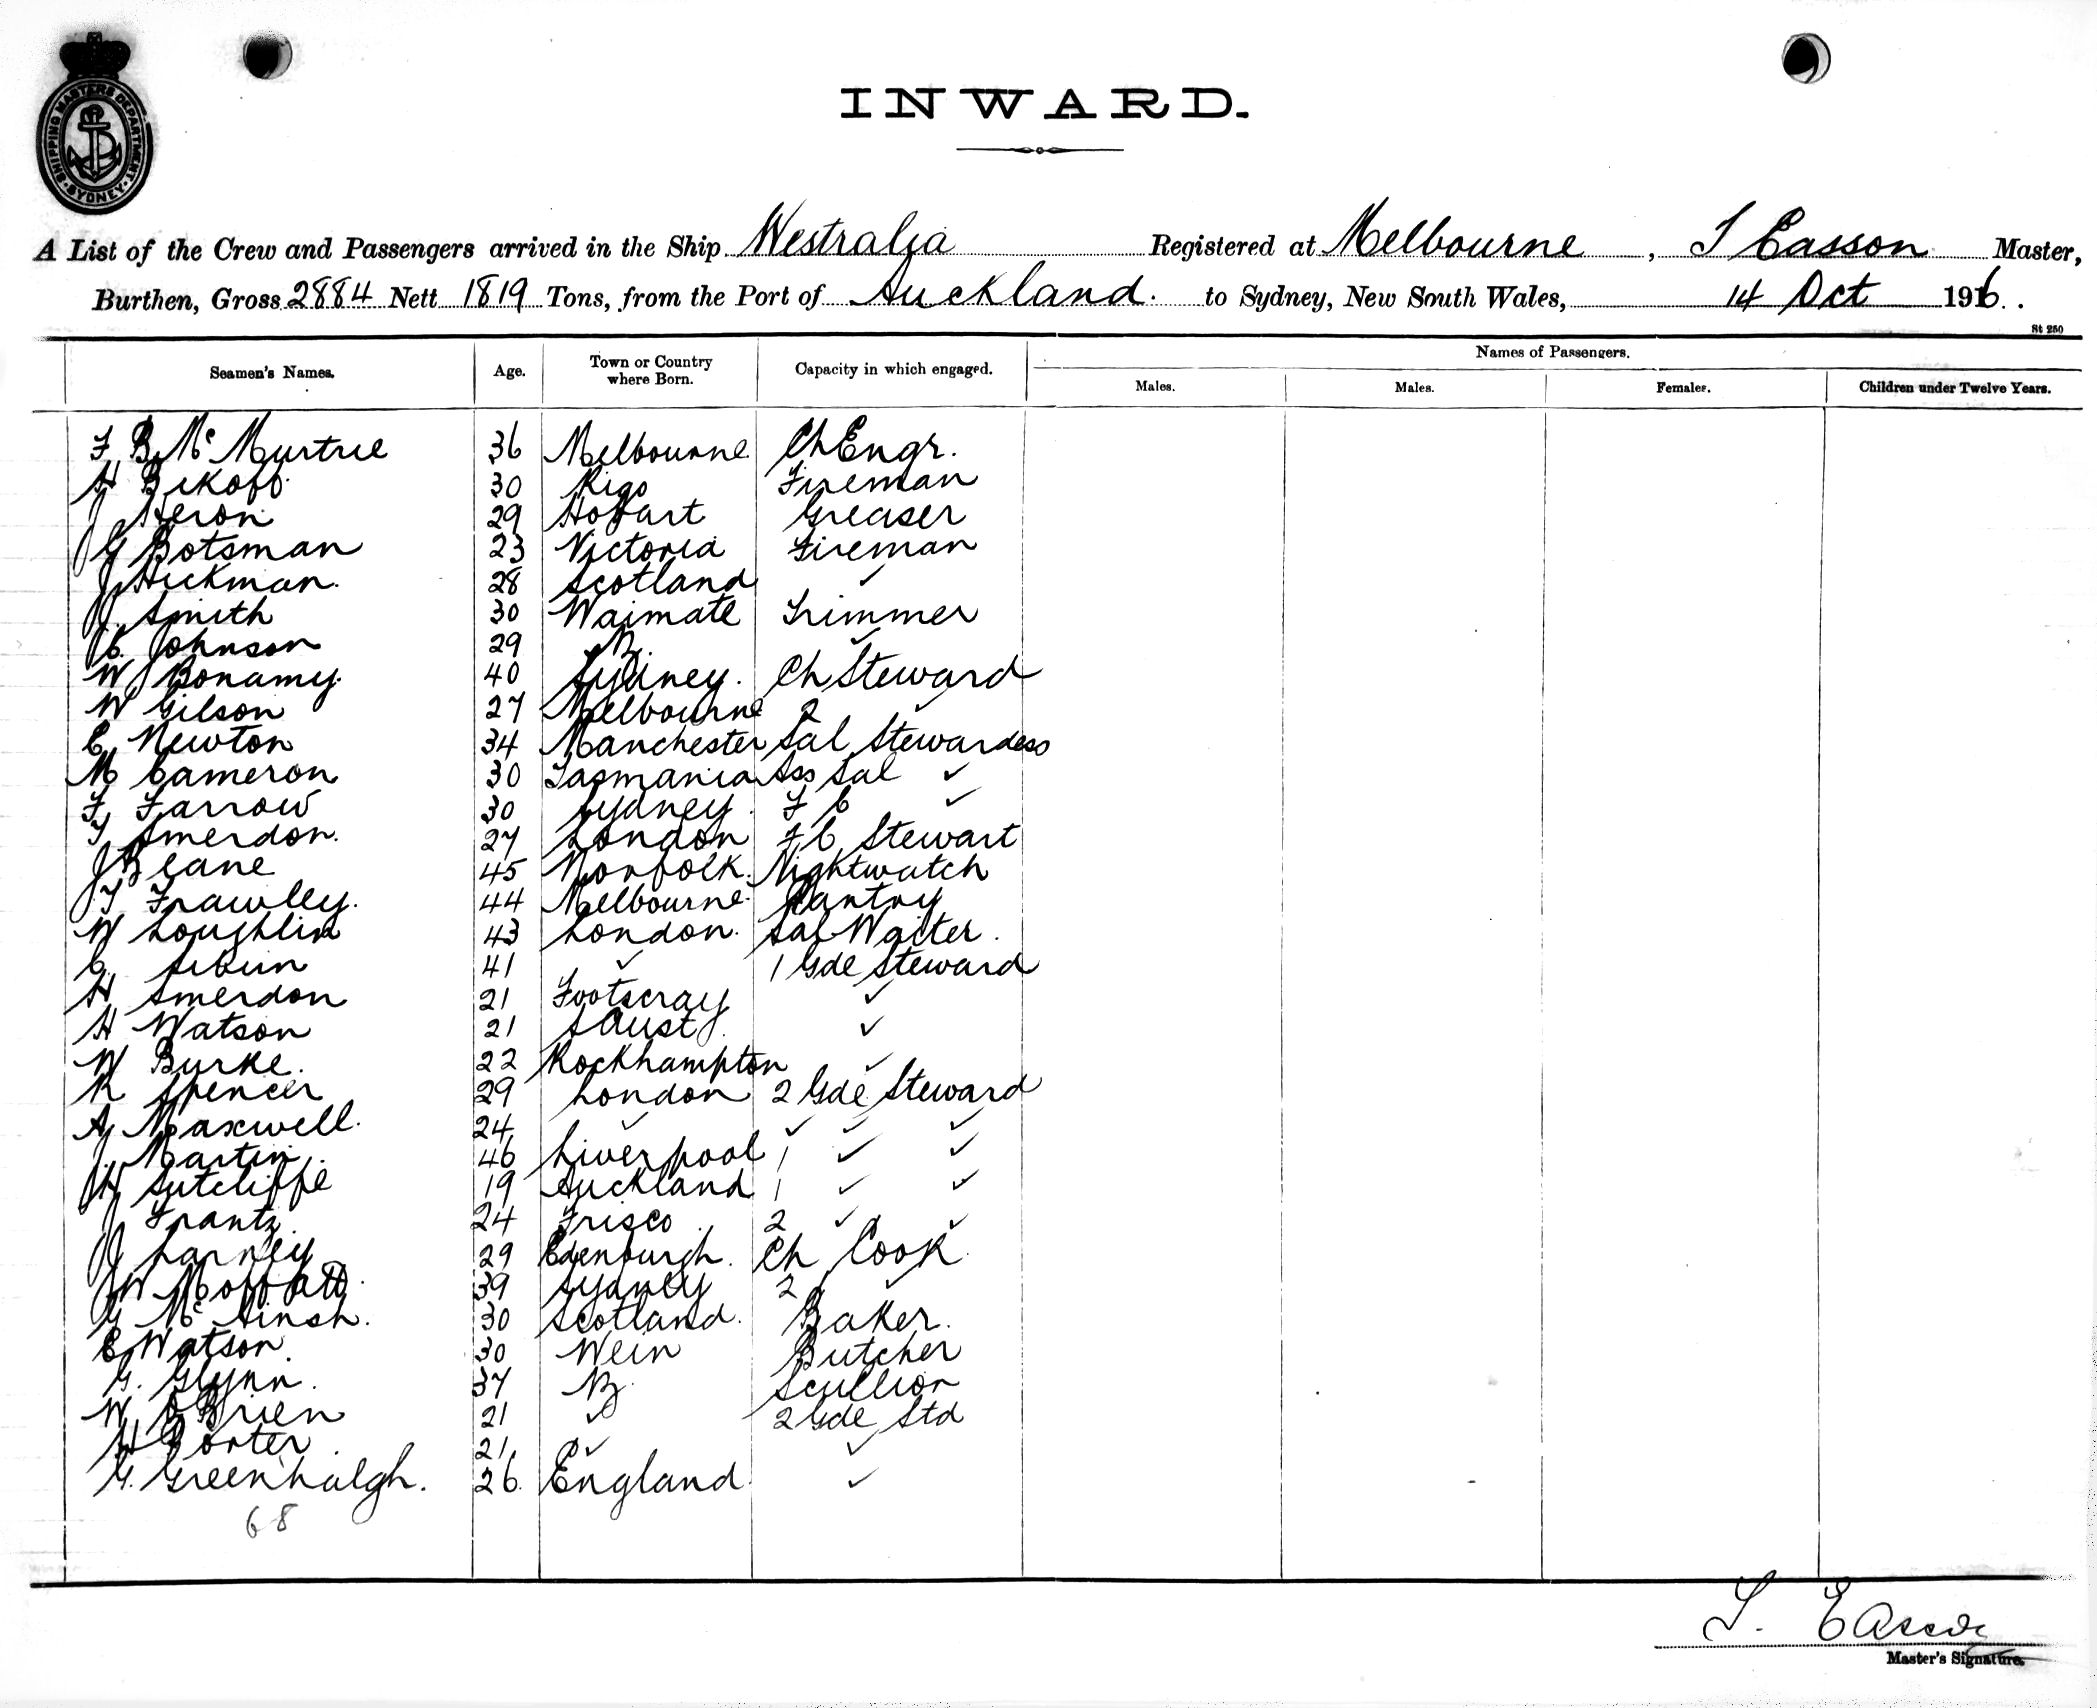 SHIPPING MASTERS DEPARTMENT. SYDNEY.
INWARD.
A List of the Crew and Passengers arrived in the Ship Westralia Registered at Melbourne, T Easson Master,
Burthen, Gross 2884 Nett 1819 Tons, from the Port of Auckland. to Sydney, New South Wales, 14 Oct 1916.
St 250
Seamen's Names. Age. Town or Country where Born. Capacity in which engaged. Names of Passengers.
Males. Males. Females. Children under Twelve Years.
F B McMurtrie 36 Melbourne Ch Engr.
H Bekoff 30 Riga Fireman
J Heron 29 Hobart Greaser
G Botsman 23 Victoria Fireman
J Hickman. 28 Scotland ✓
J. Smith 30 Waimate Trimmer
C. Johnson 29 NZ ✓
W J Bonamy. 40 Sydney. Ch Steward
W Gilson 27 Melbourne 2 ✓
E Newton 34 Manchester Sal Stewardess
M Cameron 30 Tasmania Ass Sal ✓
F Farrow 30 Sydney F C ✓
T Smerdon. 27 London F C Stewart
J Blane 45 Norfolk. Nightwatch
J. T Frawley. 44 Melbourne. Pantry
W Loughlin 43 London. Sal Waiter.
41 ✓ 1 Gde Steward
H Smerdon 21 Footscray ✓
H Watson 21 S Aust. ✓
W Burke. 22 Rockhampton ✓
R Spencer 29 London 2 Gde Steward
A Maxwell. 24 ✓ ✓ ✓ ✓
J. Martin. 46 Liverpool 1 ✓ ✓
H Sutcliffe 19 Auckland 1 ✓ ✓
J Frantz. 24 Frisco. 2 ✓ ✓
J Larnley 29 Edenburgh. Ch Cook
J W Moffatt. 39 Sydney 2 ✓
G McAinsh. 30 Scotland. Baker.
E Watson. 30 Wein Butcher
G. Glynn. 37 NZ. Scullion
W O'Brien 21 ✓ 2 Gde Std
H Porter. 21 ✓ ✓
G. Greenhalgh. 26. England. ✓
68
T. Easson
Master's Signature.